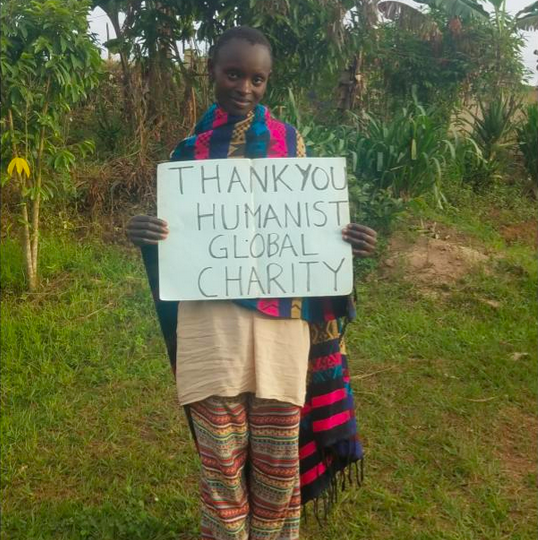 THANK YOU
HUMANIST
GLOBAL
CHARITY